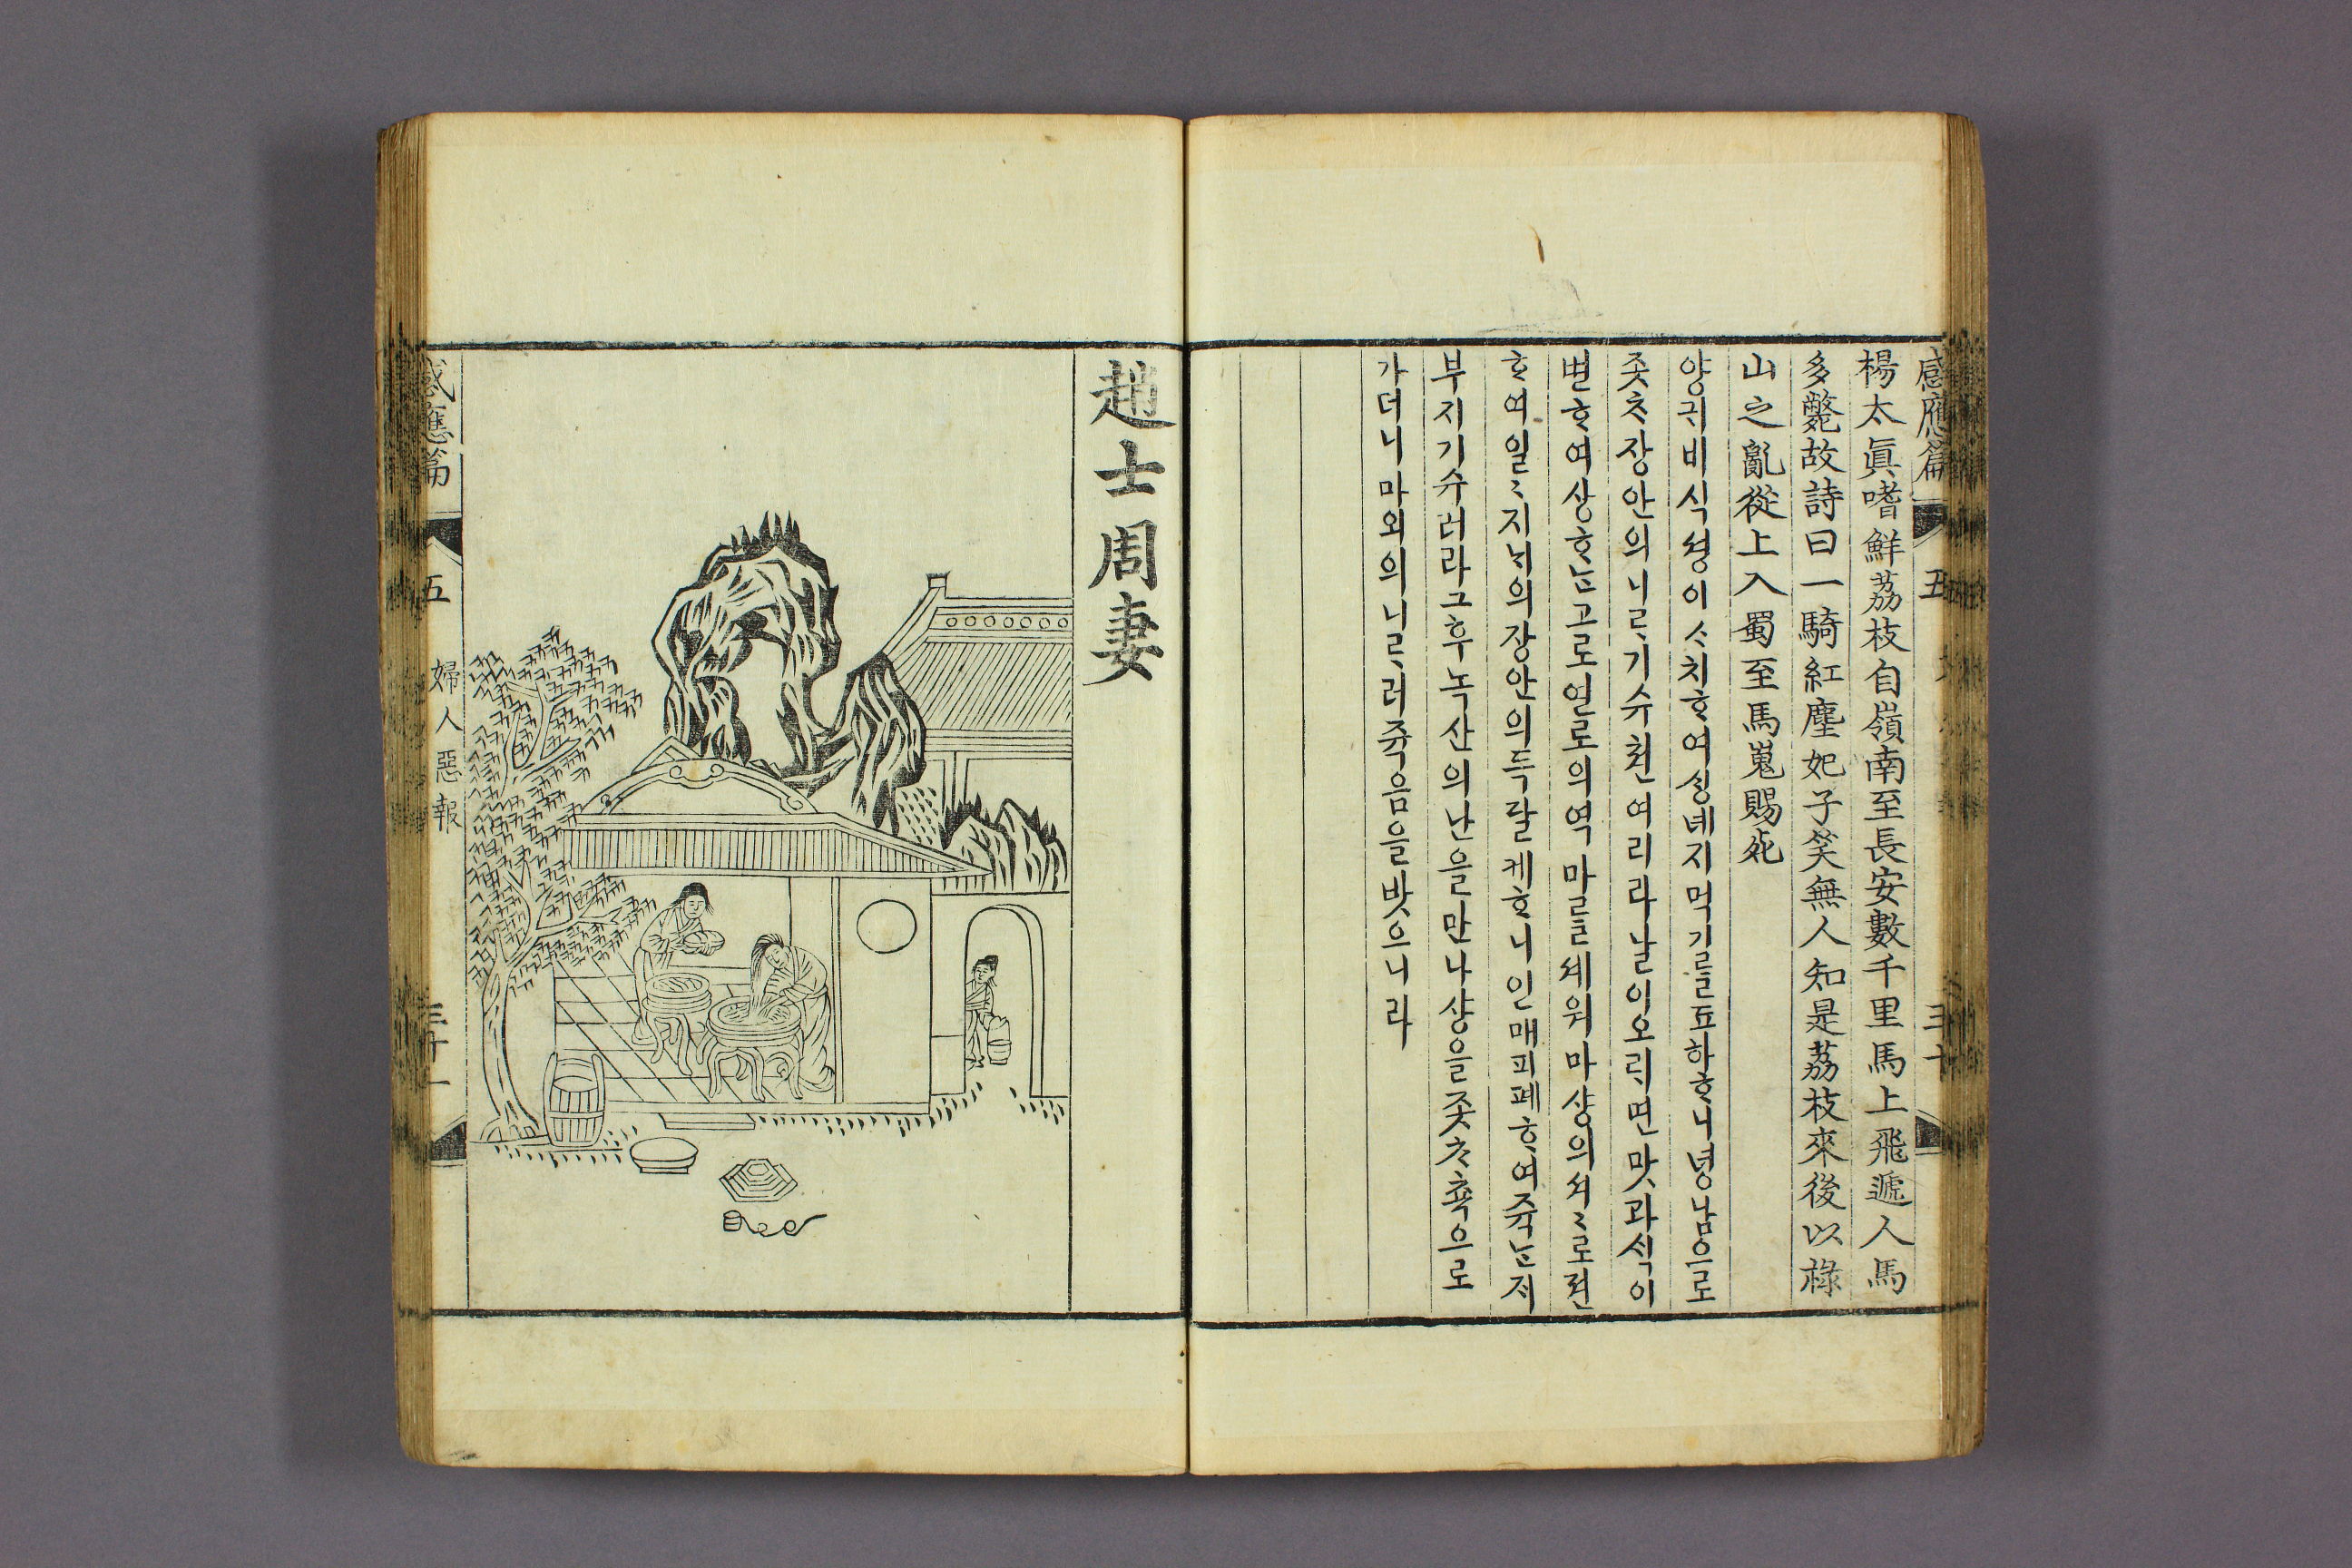 感應篇
五
三十
楊太眞嗜鮮荔枝自嶺南至長安數千里馬上飛遞人馬
多斃故詩曰一騎紅塵妃子笑無人知是荔枝來後以祿
山之亂從上入蜀至馬嵬賜死
양귀비식셩이ᄉᆞ치ᄒᆞ여싱녜지먹기를됴하ᄒᆞ니녕남으로
좃ᄎᆞ장안의니ᄅᆞ기슈쳔여리라날이오ᄅᆡ면맛과ᄉᆡᆨ이
변ᄒᆞ여상ᄒᆞᄂᆞᆫ고로연로의역마를셰워마샹의셔〻로젼
ᄒᆞ여일〻지ᄂᆡ의장안의득달케ᄒᆞ니인매피폐ᄒᆞ여쥭ᄂᆞᆫ쟤
부지기슈러라그후녹산의난을만나샹을좃ᄎᆞ쵹으로
가더니마외의니ᄅᆞ러쥭음을밧으니라
趙士周妻
感應篇
五
婦人惡報
三十一